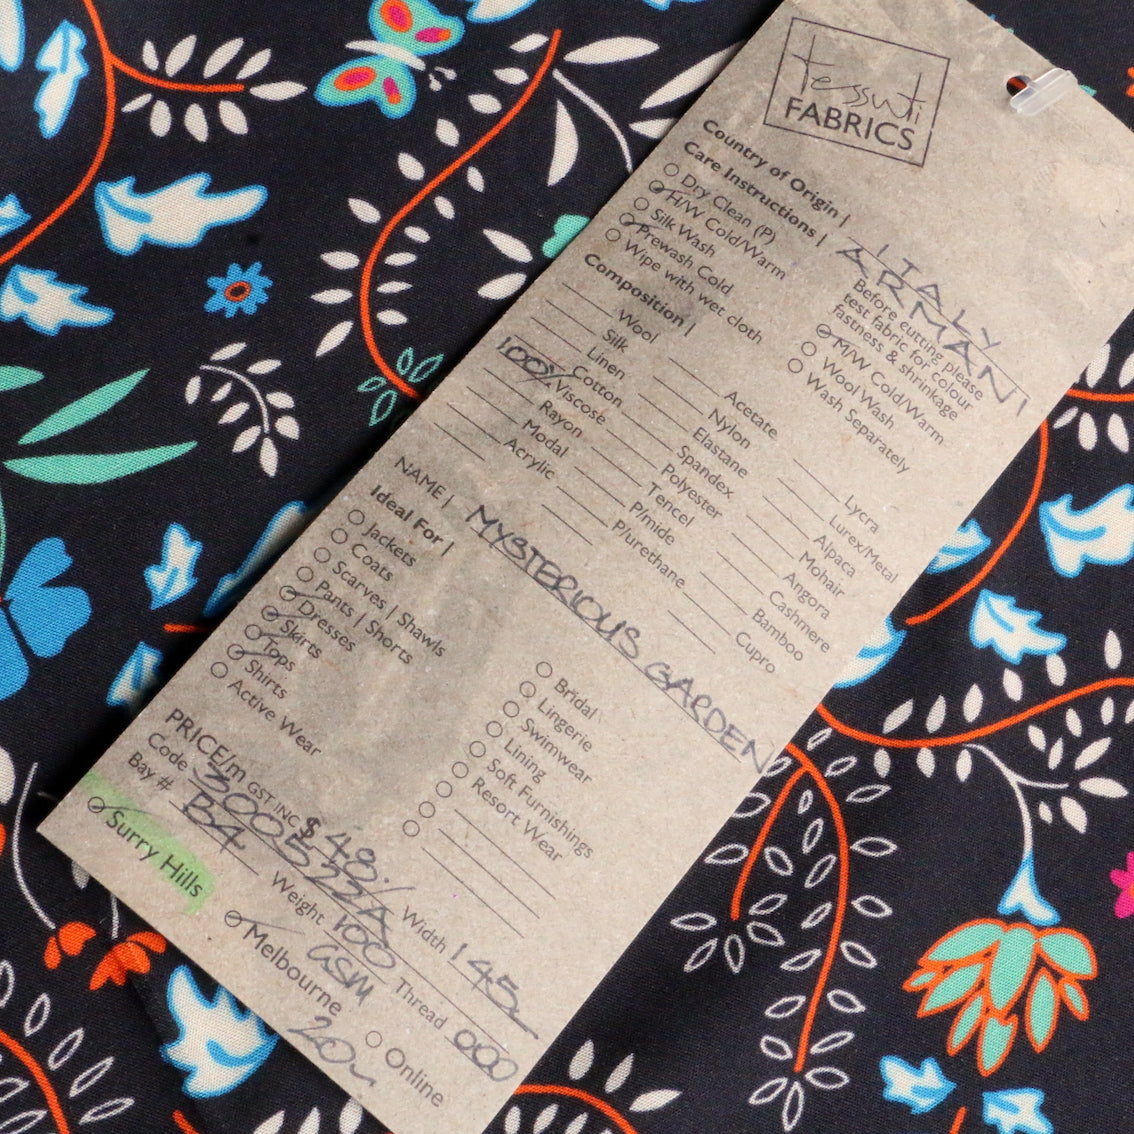 tessuti
FABRICS
Country of Origin | ITALY
Care Instructions | ARMANI
Dry Clean (P)
H/W Cold/Warm
Silk Wash
Prewash Cold
Wipe with wet cloth
Before cutting please
test fabric for colour
fastness & shrinkage
M/W Cold/Warm
Wool Wash
Wash Separately
Composition |
Wool
Silk
Linen
100% Cotton
Viscose
Rayon
Modal
Acrylic
Acetate
Nylon
Elastane
Spandex
Polyester
Tencel
P/mide
P/urethane
Lycra
Lurex/Metal
Alpaca
Mohair
Angora
Cashmere
Bamboo
Cupro
NAME | MYSTERIOUS GARDEN
Ideal For |
Jackets
Coats
Scarves | Shawls
Pants | Shorts
Dresses
Skirts
Tops
Shirts
Active Wear
Bridal
Lingerie
Swimwear
Lining
Soft Furnishings
Resort Wear
PRICE/m GST INC $48
Code 300522A Width 145
Bay # B4 Weight 100 GSM Thread 000
Surry Hills Melbourne 20 Online